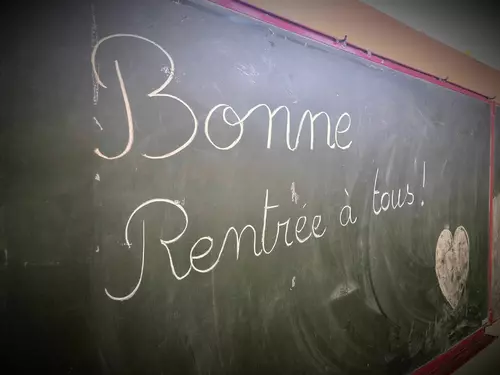 Bonne
Rentrée à tous !